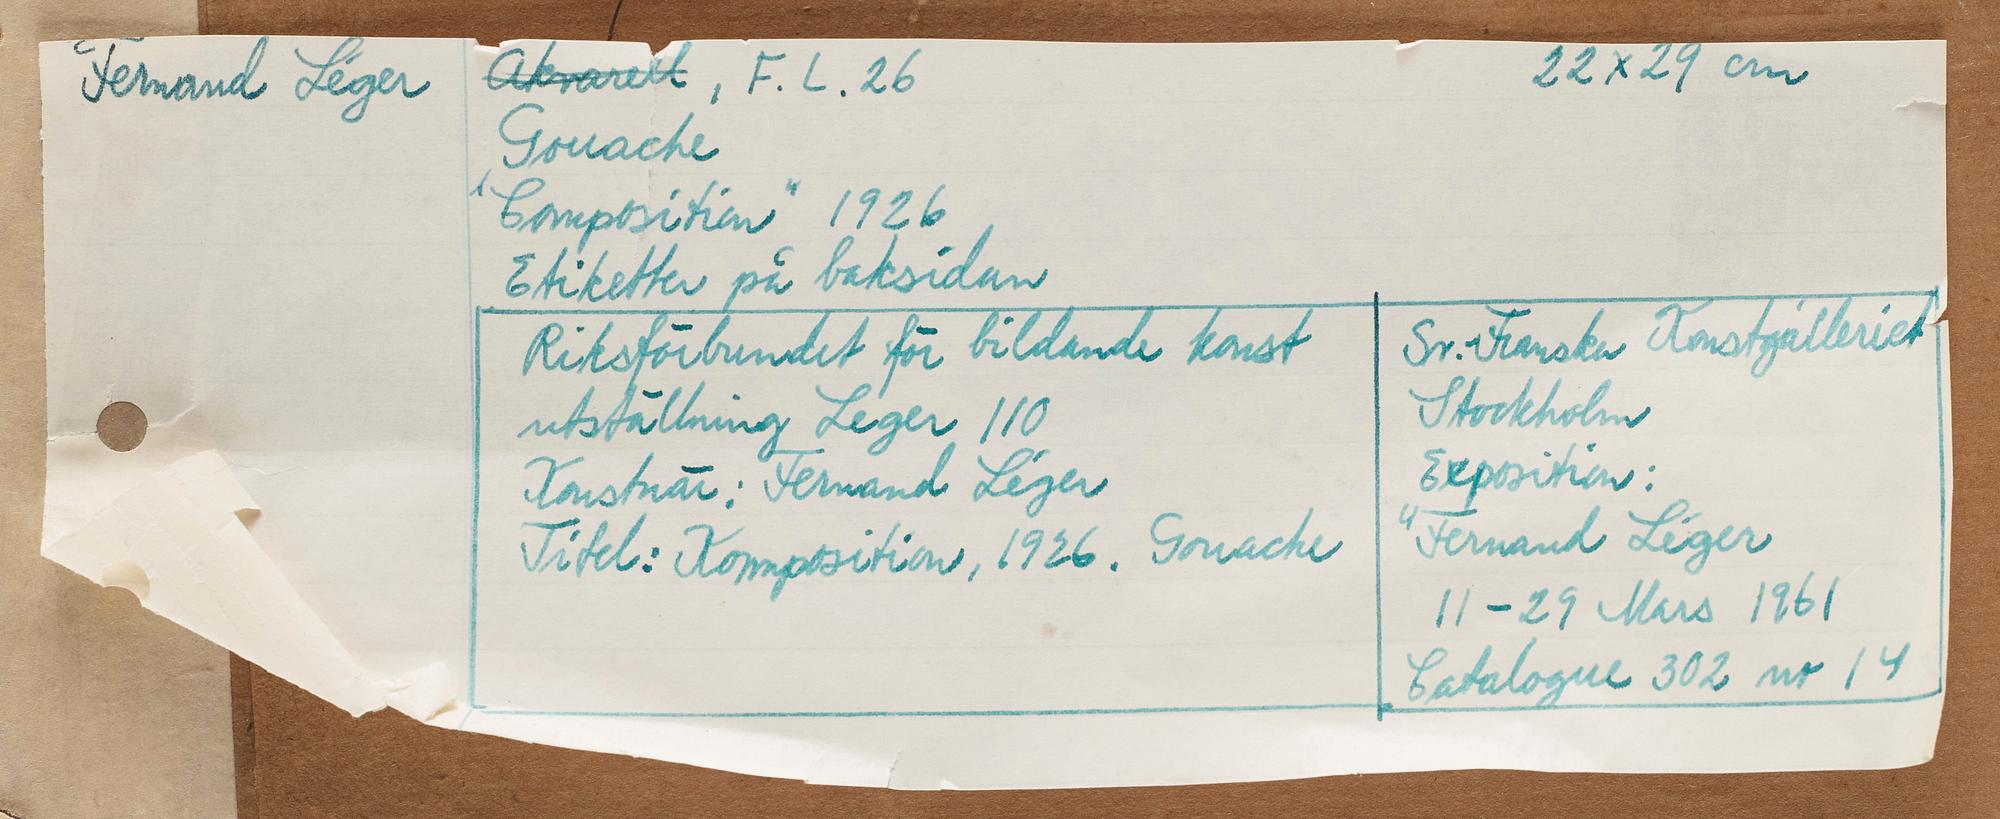 Fernand Léger
Akvarell, F. L. 26
22 x 29 cm
Gouache
"Composition" 1926
Etiketter på baksidan
Riksförbundet för bildande konst
utställning Leger 110
Konstnär: Fernand Léger
Titel: Komposition, 1926. Gouache
Sv.-Franska Konstgalleriet
Stockholm
Exposition:
"Fernand Léger
11-29 Mars 1961
Catalogue 302 nr 14